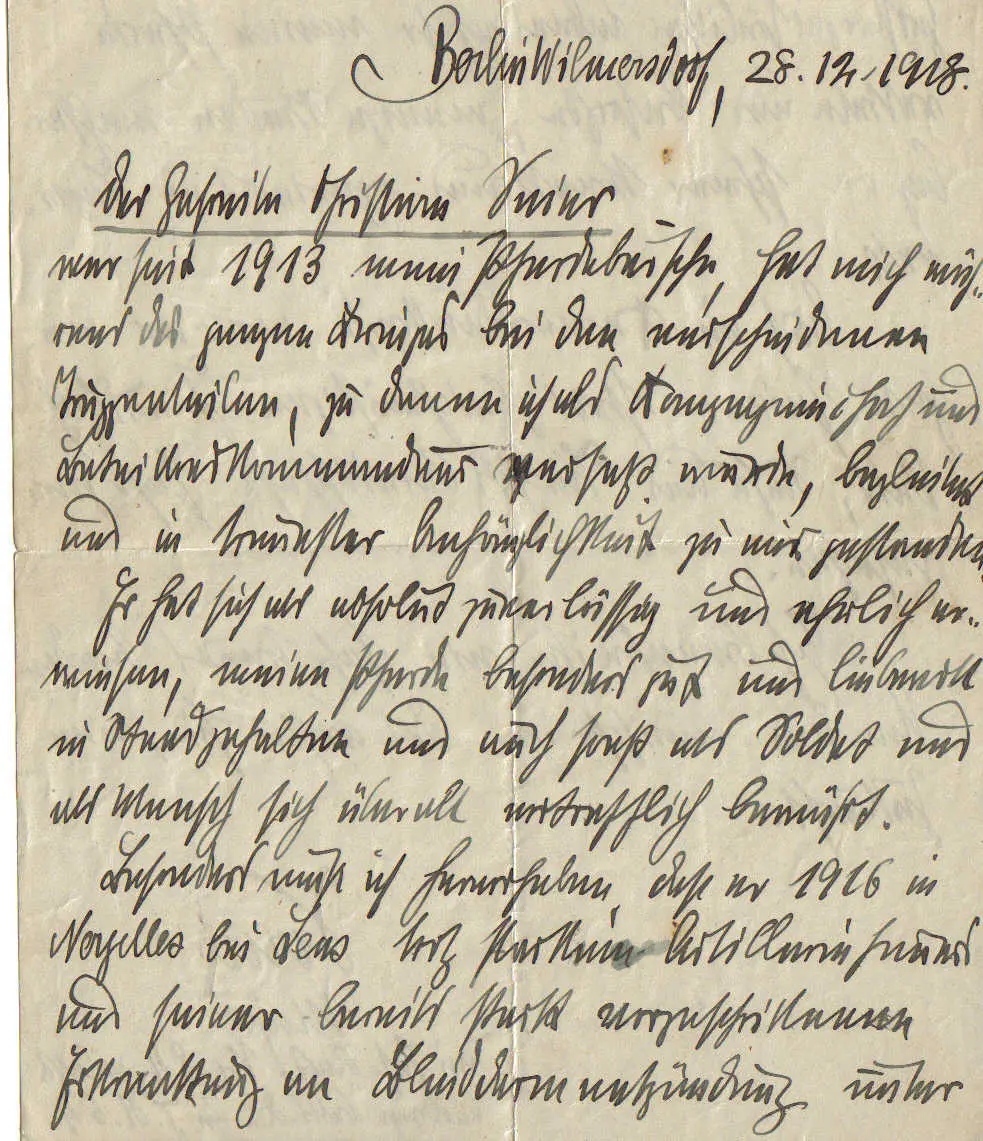 Berlin Wilmersdorf, 28.12.1918.
Der Gefreite Christian
war seit 1913 mein Pferdebursche, hat mich wäh-
rend des ganzen Krieges bei den verschiedenen
Truppenteilen, zu denen ich als Kompagniechef und
Bataillonskommandeur versetzt wurde, begleitet
und in treuester Anhänglichkeit zu mir gestanden.
Er hat sich als absolut zuverlässig und ehrlich er-
wiesen, meine Pferde besonders gut und liebevoll
in Stand gehalten und auch sonst als Soldat und
als Mensch sich überall vortrefflich bewährt.
Besonders muß ich hervorheben, daß er 1916 in
Noyelles bei Lens trotz starkem Artilleriefeuers
und seiner bereits stark vorgeschrittenen
Erkrankung an Blinddarmentzündung unter